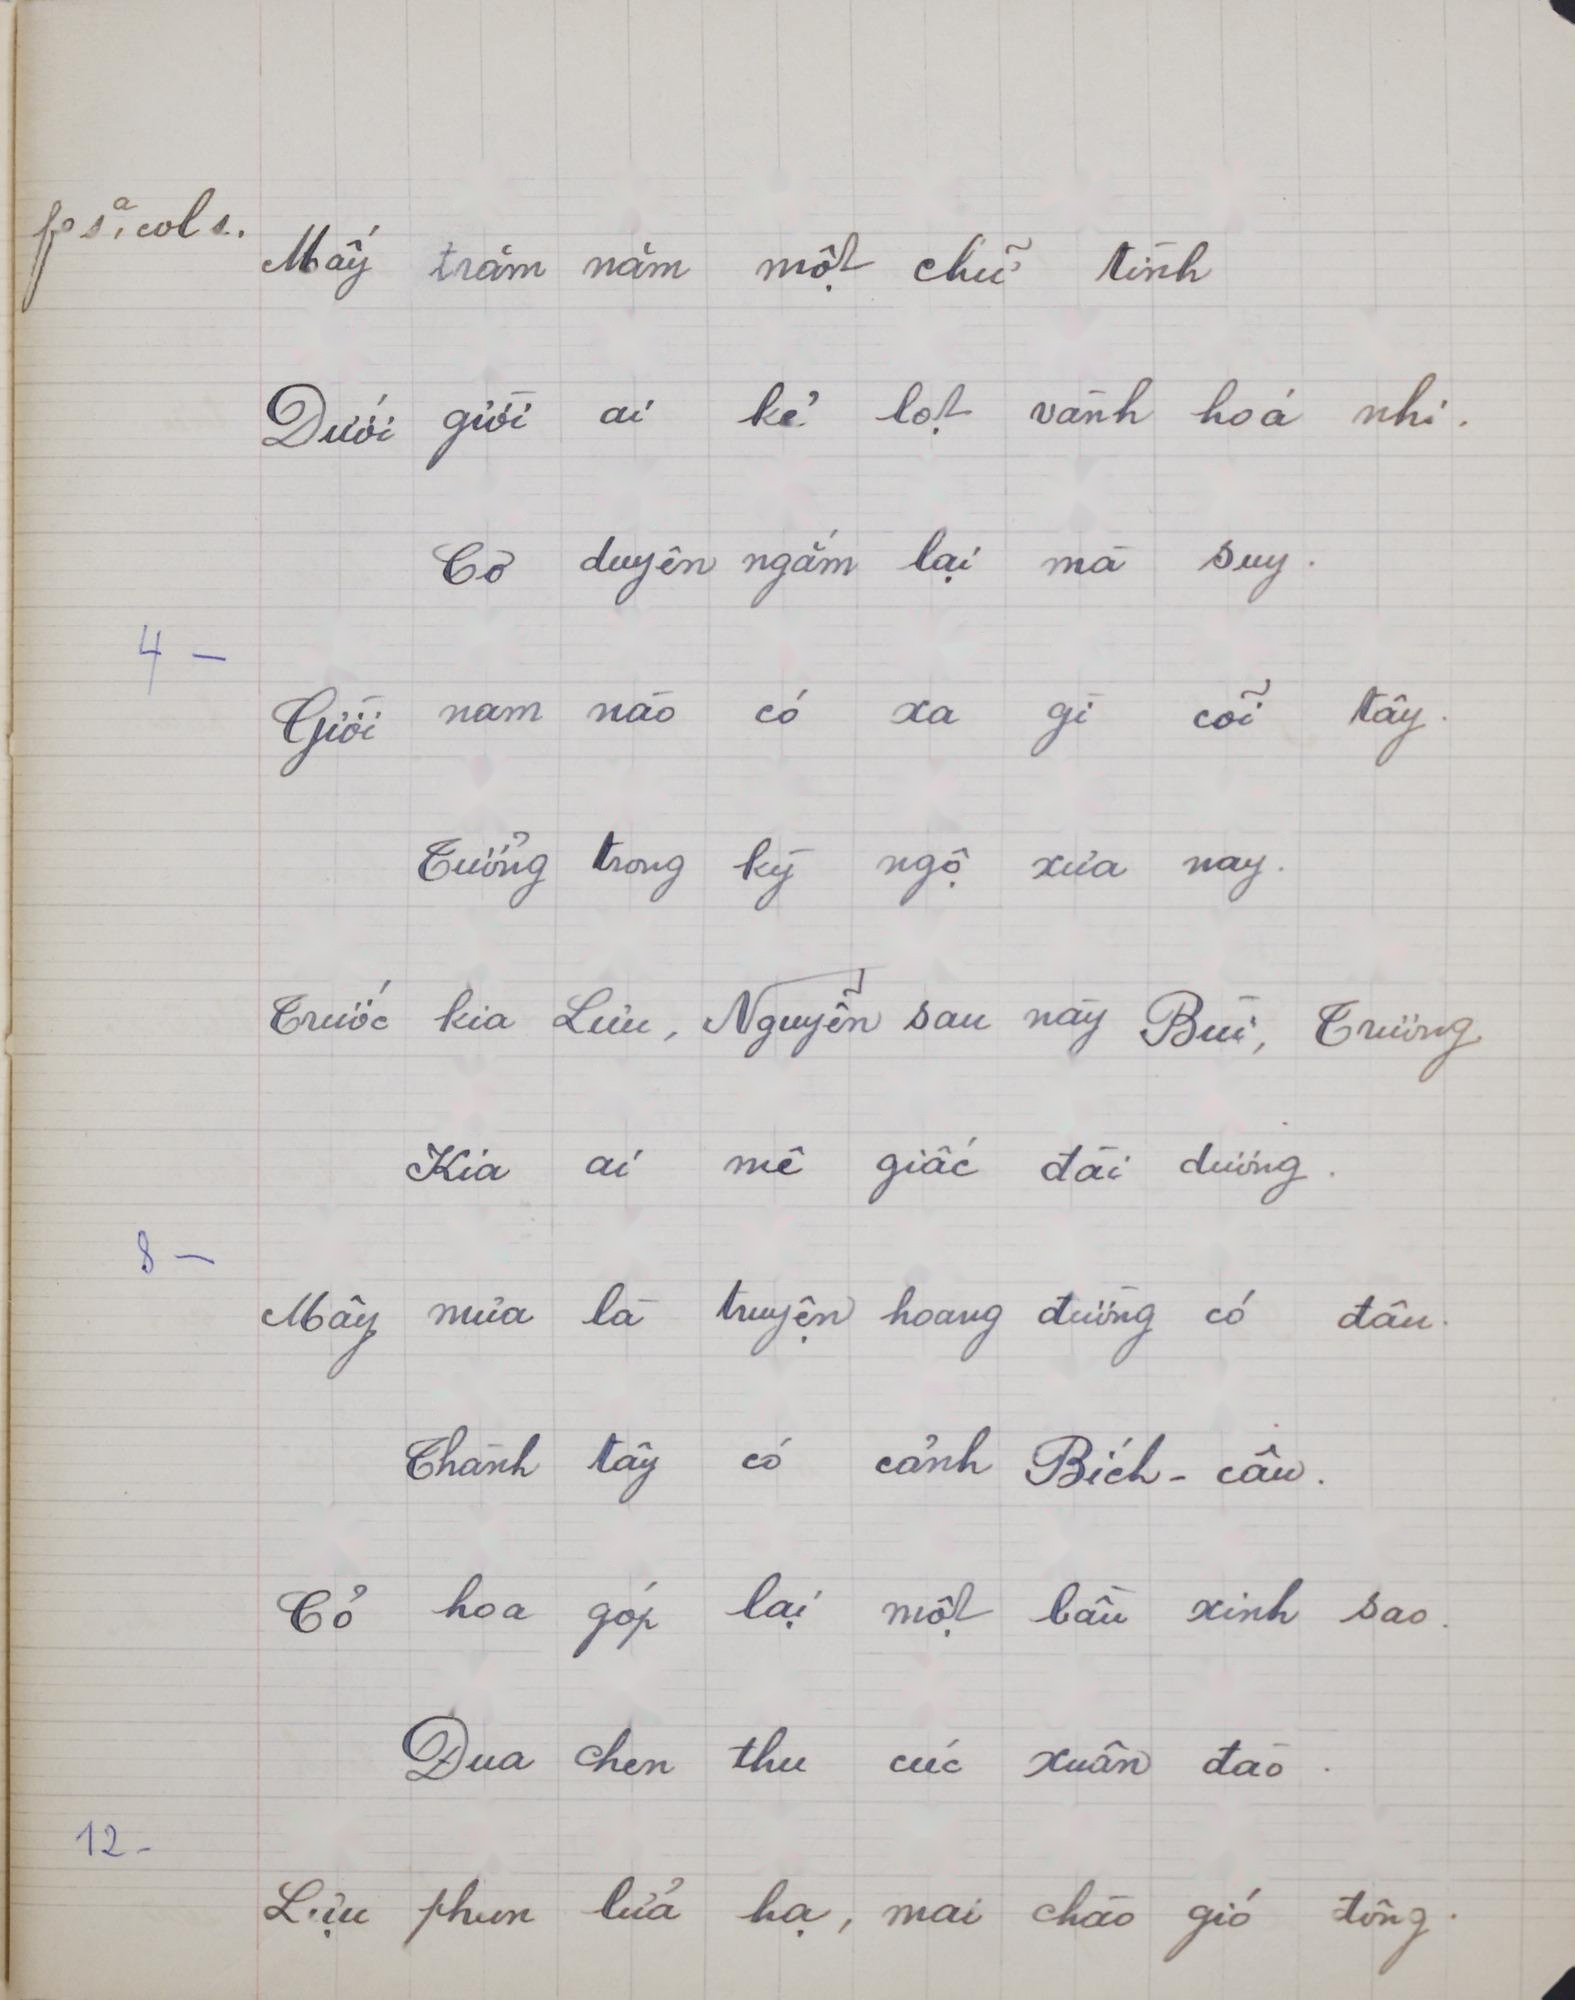 p 5ª, col 1.
Mấy trăm năm một chữ tình
Dưới giời ai kẻ lọt vành hoá nhi.
Cơ duyên ngẫm lại mà suy.
4 —
Giời nam nào có xa gì cõi tây.
Tưởng trong kỳ ngộ xưa nay.
Trước kia Lưu, Nguyễn sau này Bùi, Trương
Kìa ai mê giấc đài dương.
8 —
Mây mưa là truyện hoang đường có đâu.
Thành tây có cảnh Bích-câu.
Cỏ hoa góp lại một bầu xinh sao.
Đua chen thu cúc xuân đào.
12 -
Lựu phun lửa hạ, mai chào gió đông.